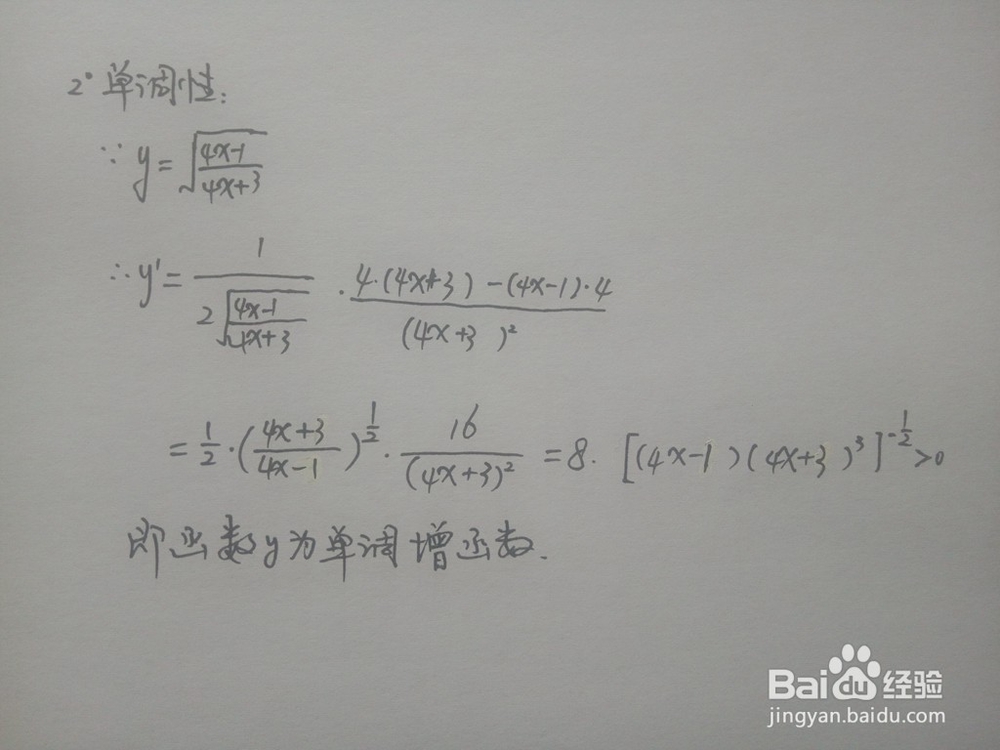 2° 单调性:
∵ y = √((4x-1)/(4x+3))
∴ y' = 1/(2√((4x-1)/(4x+3))) · (4·(4x+3)-(4x-1)·4)/(4x+3)²
= 1/2·((4x+3)/(4x-1))^(1/2) · 16/(4x+3)² = 8·[(4x-1)(4x+3)³]^(-1/2) >0
即函数y为单调增函数.
Baidu经验
jingyan.baidu.com